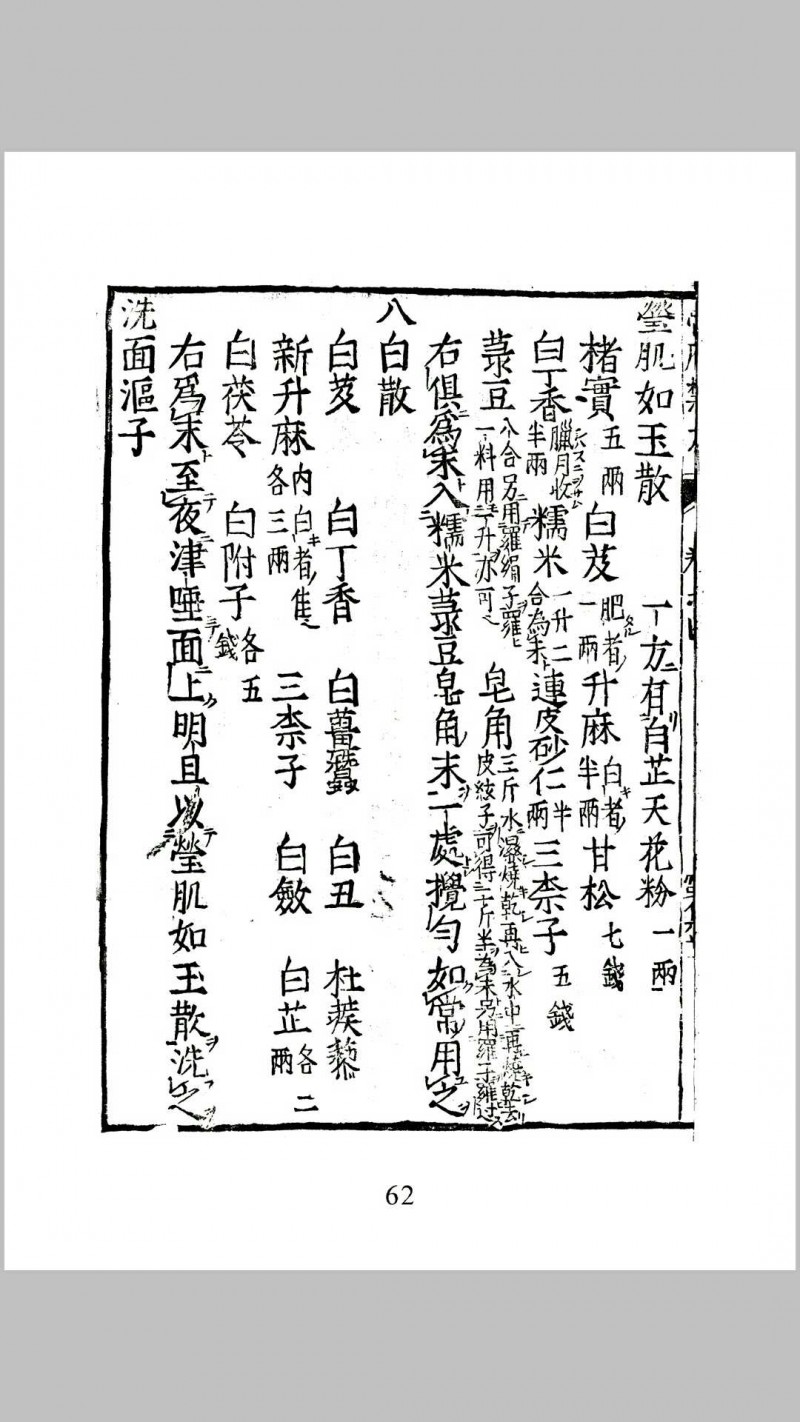 瑩肌如玉散 一方有白芷天花粉一兩
楮實五兩 白芨肥者一兩 升麻白者半兩 甘松七錢
白丁香臘月收半兩 糯米一升二合為末 連皮砂仁半兩 三柰子五錢
菉豆八合另用羅絹子羅一料用一升亦可 皂角三斤水濕燒乾再入水中再燒乾去皮絃子可得二斤半為末另用羅子羅过
右俱為末入糯米菉豆皂角末一處攪勻如常用之
八白散
白芨 白丁香 白薑蠶 白丑 杜蒺藜
新升麻内白者佳各三兩 三柰子 白斂 白芷各二兩
白茯苓 白附子各五錢
右為末至夜津唾面上明旦以瑩肌如玉散洗之
洗面漚子
62